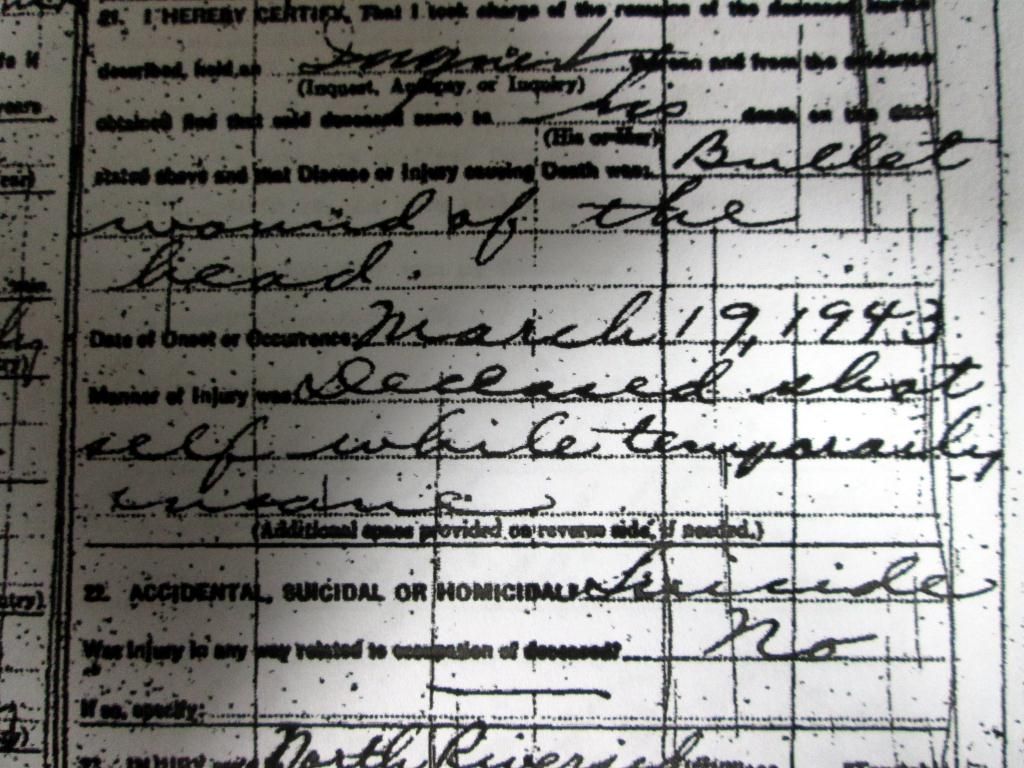 21. I HEREBY CERTIFY, That I took charge of the remains of the deceased herein
described, held an Inquest thereon and from the evidence
(Inquest, Autopsy or Inquiry)
obtained find that said deceased came to his death on the date
(His or Her)
stated above and that Disease or Injury causing Death was: Bullet
wound of the
head.
Date of Onset or Occurrence March 19, 1943
Manner of Injury was: Deceased shot
self while temporarily
insane
(Additional space provided on reverse side, if needed.)
22. ACCIDENTAL, SUICIDAL OR HOMICIDAL? Suicide
Was injury in any way related to occupation of deceased? No
If so, specify:
23. INJURY North